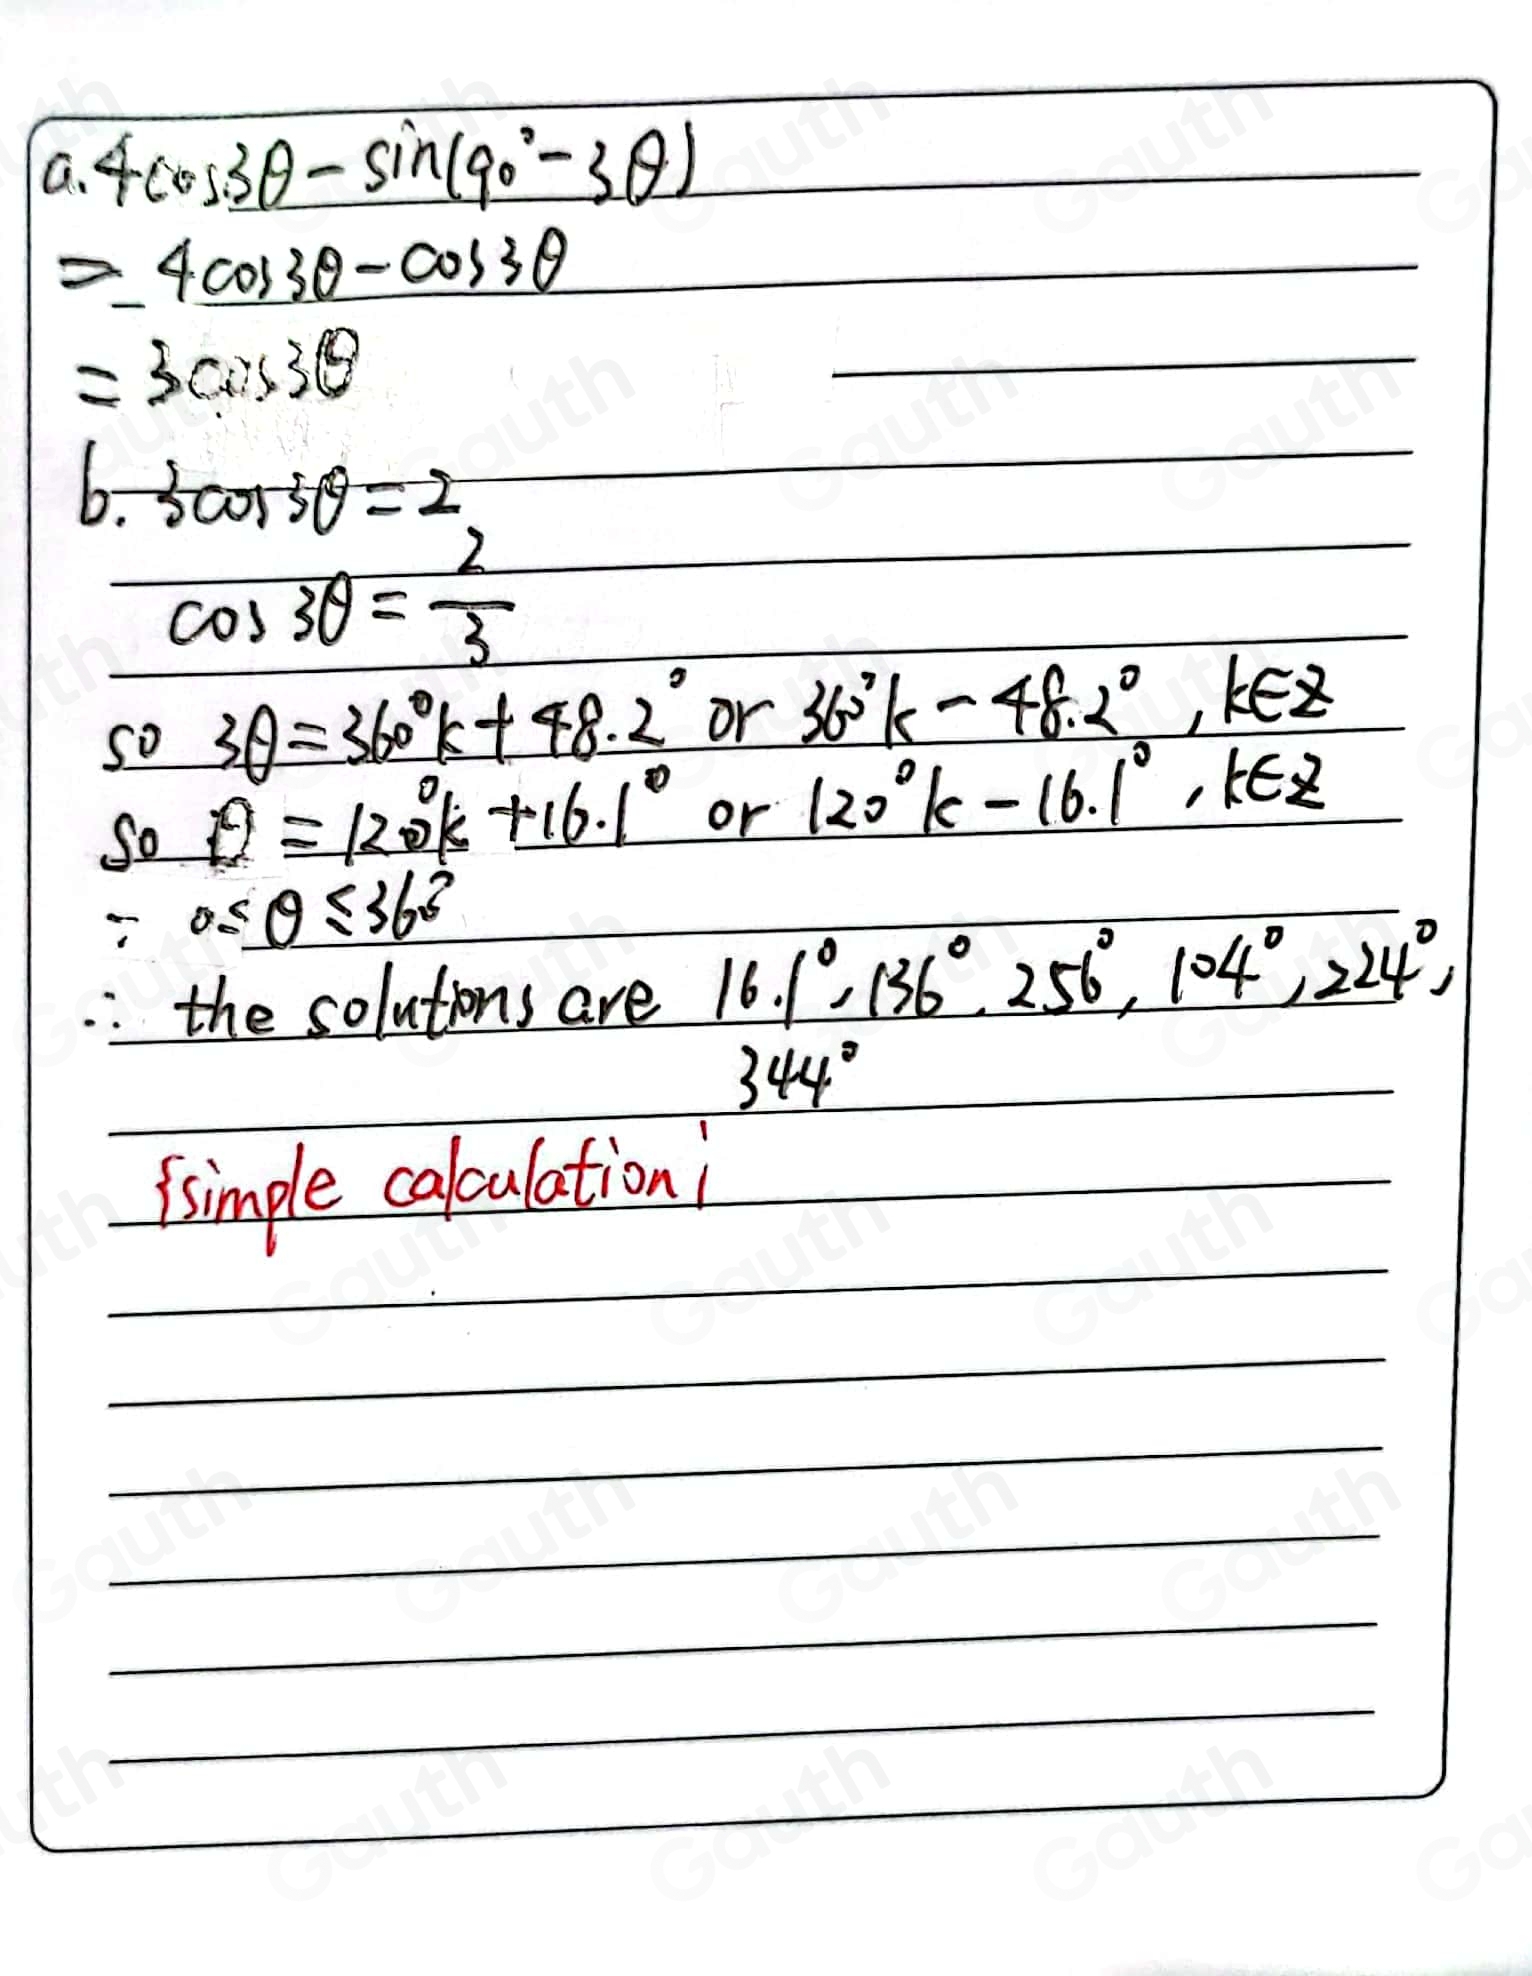 a. 4cos3θ - sin(90° - 3θ)
= 4cos3θ - cos3θ
= 3cos3θ
b. 3cos3θ = 2
cos 3θ = 2/3
so 3θ = 360°k + 48.2° or 360°k - 48.2°, k∈Z
so θ = 120°k + 16.1° or 120°k - 16.1°, k∈Z
∵ 0≤θ≤360°
∴ the solutions are 16.1°, 136°, 256°, 104°, 224°,
344°
{simple calculation}
Gauth